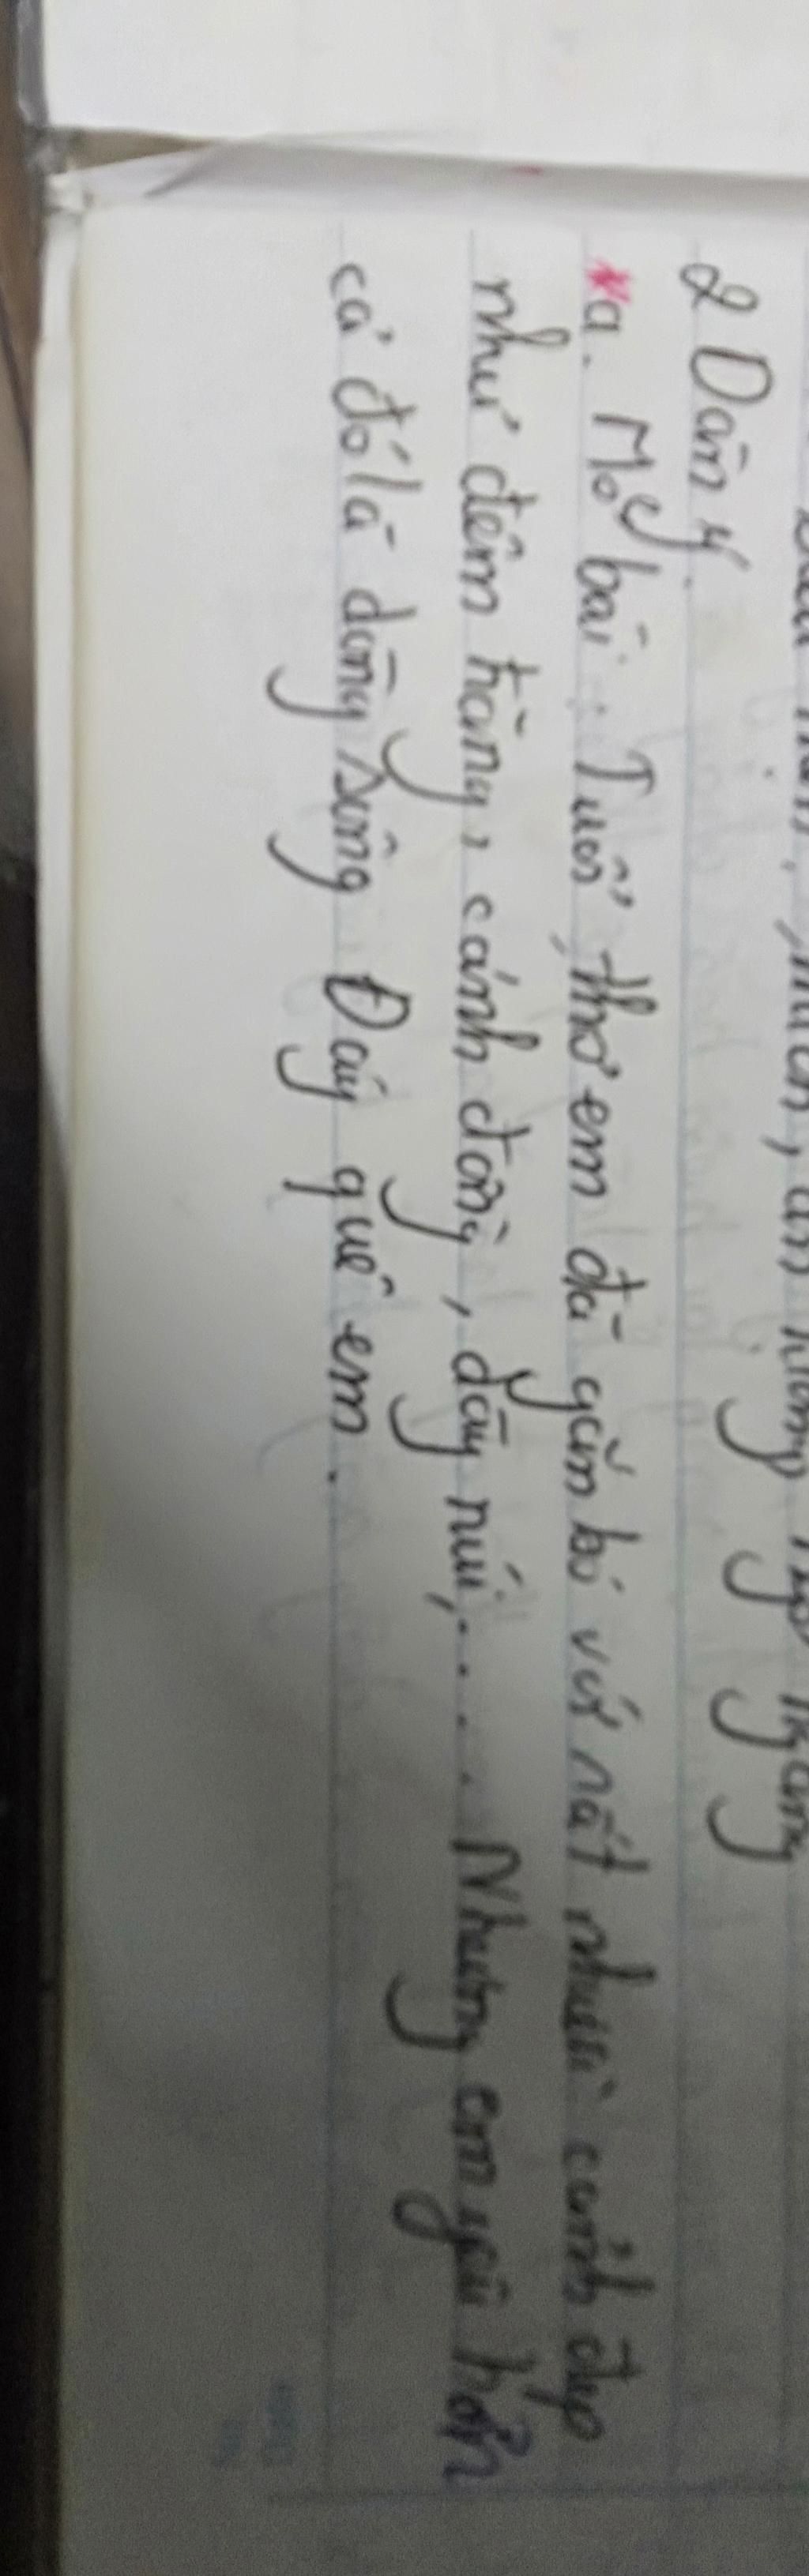 2 Dàn ý.
*a. Mở bài: Tuổi thơ em đã gắn bó với rất nhiều cảnh đẹp
như đêm trăng, cánh đồng, dãy núi,.... Nhưng em yêu hơn
cả đó là dòng sông Đáy quê em.